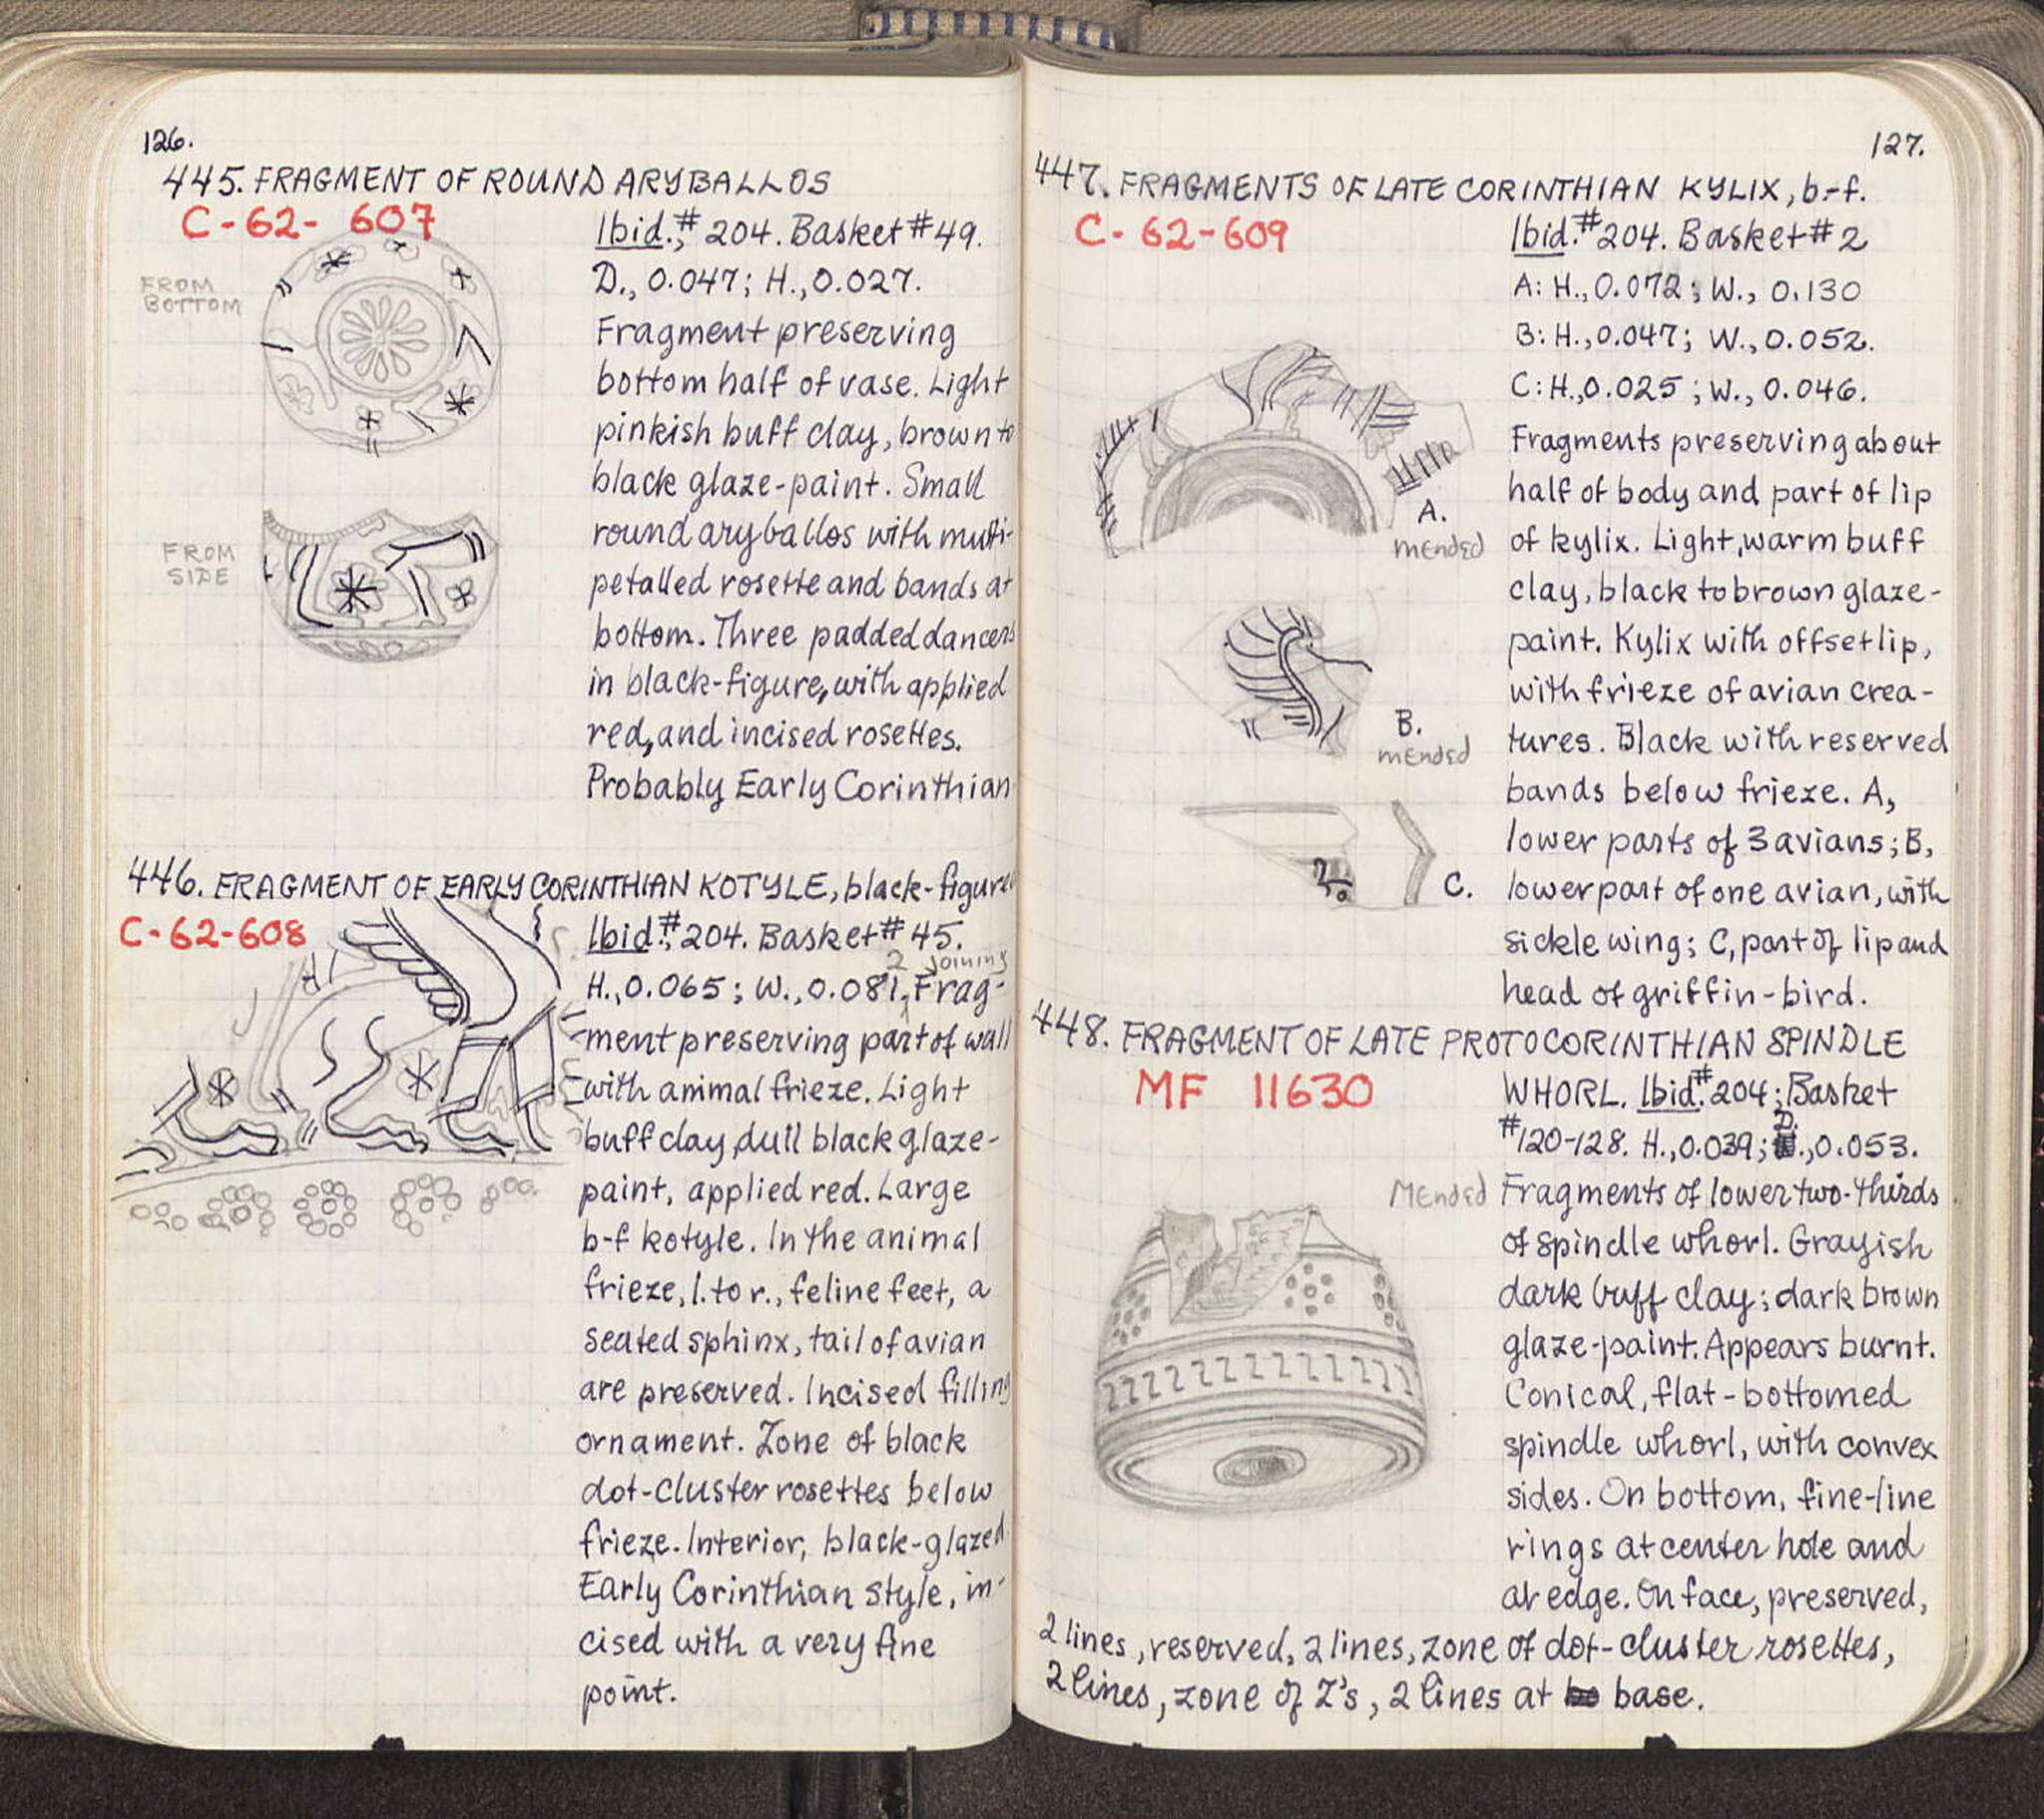 126.
445. FRAGMENT OF ROUND ARYBALLOS
C-62-607
FROM
BOTTOM
FROM
SIDE
Ibid., # 204. Basket # 49.
D., 0.047; H., 0.027.
Fragment preserving
bottom half of vase. Light
pinkish buff clay, brown to
black glaze-paint. Small
round aryballos with multi-
petalled rosette and bands at
bottom. Three padded dancers
in black-figure, with applied
red, and incised rosettes.
Probably Early Corinthian
446. FRAGMENT OF EARLY CORINTHIAN KOTYLE, black-figure
C-62-608
Ibid., # 204. Basket # 45.
2 joining
H., 0.065; W., 0.081, Frag-
ment preserving part of wall
with animal frieze. Light
buff clay, dull black glaze-
paint, applied red. Large
b-f kotyle. In the animal
frieze, l. to r., feline feet, a
seated sphinx, tail of avian
are preserved. Incised filling
ornament. Zone of black
dot-cluster rosettes below
frieze. Interior, black-glazed.
Early Corinthian style, in-
cised with a very fine
point.
127.
447. FRAGMENTS OF LATE CORINTHIAN KYLIX, b-f.
C-62-609
Ibid. # 204. Basket # 2
A: H., 0.072; W., 0.130
B: H., 0.047; W., 0.052.
C: H., 0.025; W., 0.046.
Fragments preserving about
half of body and part of lip
of kylix. Light, warm buff
clay, black to brown glaze-
paint. Kylix with offset lip,
with frieze of avian crea-
tures. Black with reserved
bands below frieze. A,
lower parts of 3 avians; B,
lower part of one avian, with
sickle wing; C, part of lip and
head of griffin-bird.
A.
mended
B.
mended
C.
448. FRAGMENT OF LATE PROTOCORINTHIAN SPINDLE
MF 11630
WHORL. Ibid. # 204; Basket
# 120-128. H., 0.039; D., 0.053.
Mended
Fragments of lower two-thirds
of spindle whorl. Grayish
dark buff clay; dark brown
glaze-paint. Appears burnt.
Conical, flat-bottomed
spindle whorl, with convex
sides. On bottom, fine-line
rings at center hole and
at edge. On face, preserved,
2 lines, reserved, 2 lines, zone of dot-cluster rosettes,
2 lines, zone of Z's, 2 lines at base.